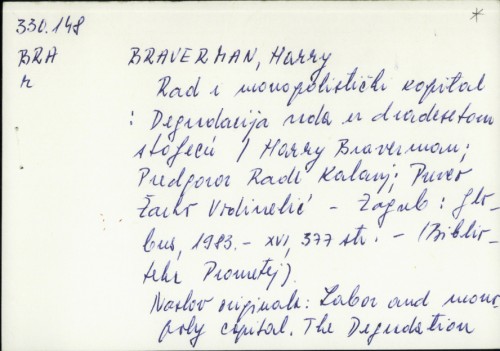 330.148
BRA
r
BRAVERMAN, Harry
Rad i monopolistički kapital
: Degradacija rada u dvadesetom
stoljeću / Harry Braverman;
Predgovor Rade Kalanj; Preveo
Žarko Vodinelić - Zagreb : Glo-
bus, 1983. - XVI, 377 str. - (Biblio-
teka Prometej)
Naslov originala: Labor and mono-
poly capital. The Degradation